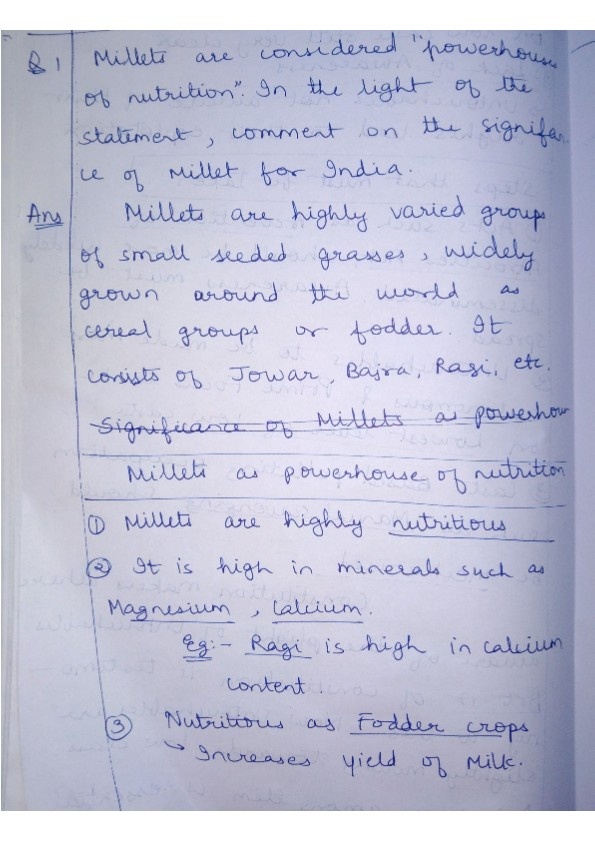 Q 1 Millets are considered "powerhouse
of nutrition". In the light of the
statement, comment on the significan
ce of Millet for India.
Ans Millets are highly varied groups
of small seeded grasses, widely
grown around the world as
cereal groups or fodder. It
consists of Jowar, Bajra, Ragi, etc.
Significance of Millets as powerhou
Millets as powerhouse of nutrition
① Millets are highly nutritious
② It is high in minerals such as
Magnesium, Calcium.
Eg:- Ragi is high in calcium
content.
③ Nutritious as Fodder crops
↳ Increases yield of Milk.